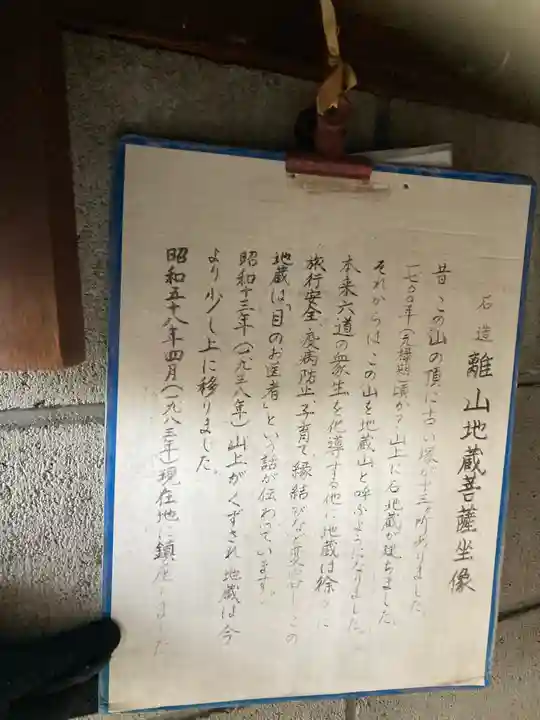 石造 離山地蔵菩薩坐像
昔 この山の頂に古い塚が十三ヶ所ありました。
一七〇〇年(元禄期)頃か?山上に石地蔵が建ちました
それからは この山を地蔵山と呼ぶようになりました。
本来六道の衆生を化導する他に地蔵は徐々に
旅行安全 疫病防止 子育て、縁結びなど変 し この
地蔵は、「目のお医者」という話が伝わっています。
昭和十三年(一九三八年)山上がくずされ 地蔵は今
より少し上に移りました。
昭和五十八年四月(一九八三年)現在地に鎮座しました